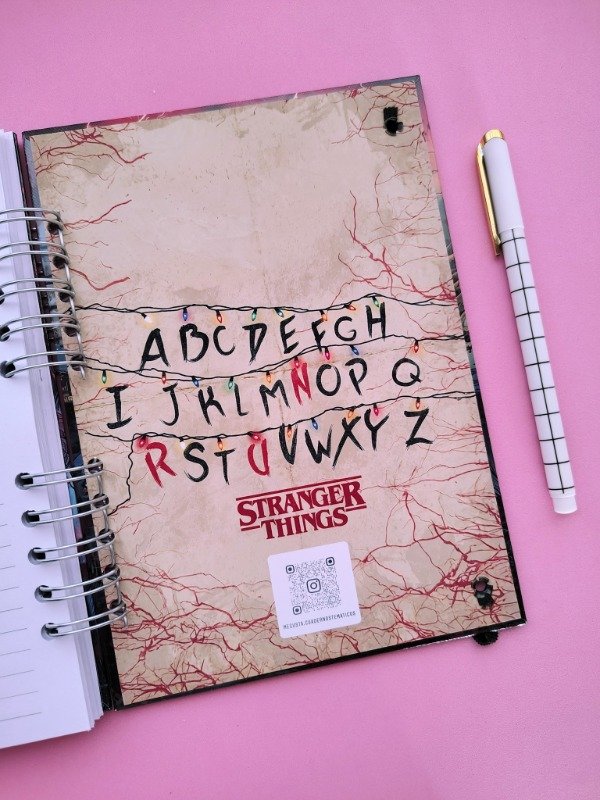 ABCDEFGH
IJKLMNOPQ
RSTUVWXYZ
STRANGER
THINGS
MEGUSTA.CUADERNOSTEMATICOS